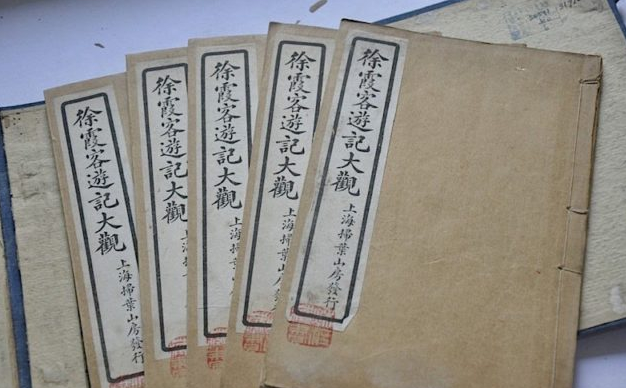 徐霞客遊記大觀
上海掃葉山房發行
徐霞客遊記大觀
上海掃葉山房
徐霞客遊記大觀
上海掃
徐霞客遊記大觀
上海
徐霞客遊記大觀
上海掃葉山房發行